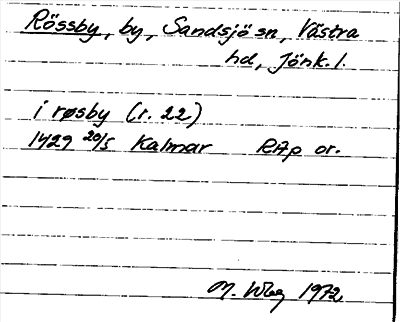 Rössby, by, Sandsjö sn, Västra
hd, Jönk. l.
i røsby (r. 22)
1429 20/5 Kalmar RAp or.
M. Wbg 1972